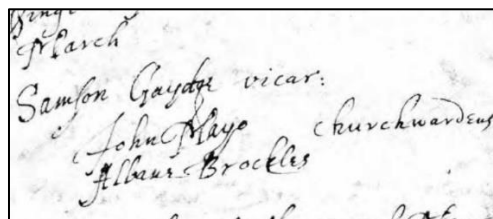 March
Samson Gaydge vicar:
John Mayo Churchwardens
Albane Brockles